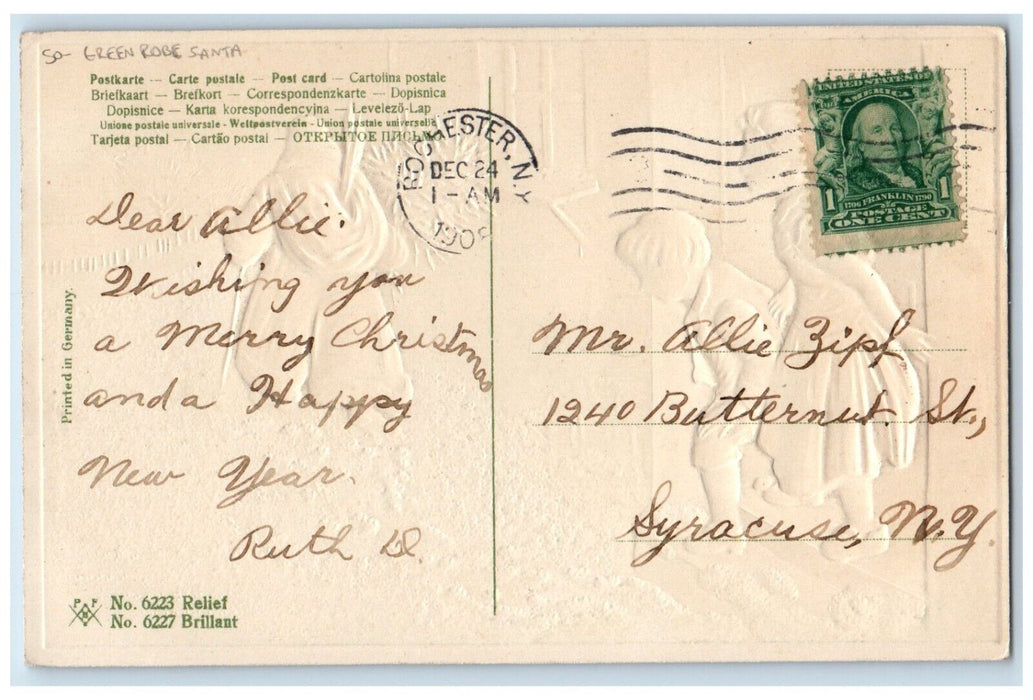 50- GREEN ROBE SANTA
Postkarte — Carte postale — Post card — Cartolina postale
Briefkaart — Brefkort — Correspondenzkarte — Dopisnica
Dopisnice — Karta korespondencyjna — Levelező-Lap
Unione postale universale - Weltpostverein - Union postale universelle
Tarjeta postal — Cartão postal — ОТКРЫТОЕ ПИСЬМО
ROCHESTER, N.Y.
DEC 24
1 - AM
UNITED STATES OF
AMERICA
1706 FRANKLIN 1790
1 1
POSTAGE
ONE CENT
Dear Allie:
Wishing you
a Merry Christmas
and a Happy
New Year.
Ruth D.
Mr. Allie Zipf
1240 Butternut St.,
Syracuse, N.Y.
Printed in Germany.
P F B
No. 6223 Relief
No. 6227 Brillant